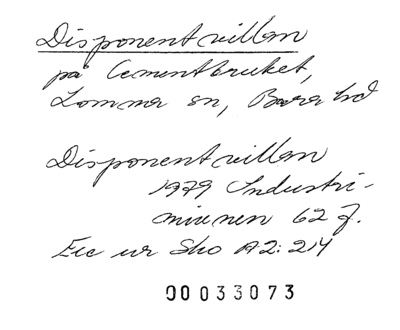 Disponentvillan
på Cementbruket,
Lomma sn, Bara hd
Disponentvillan
1979 Industri-
minnen 62 f.
Exc ur Sko A2:214
00033073